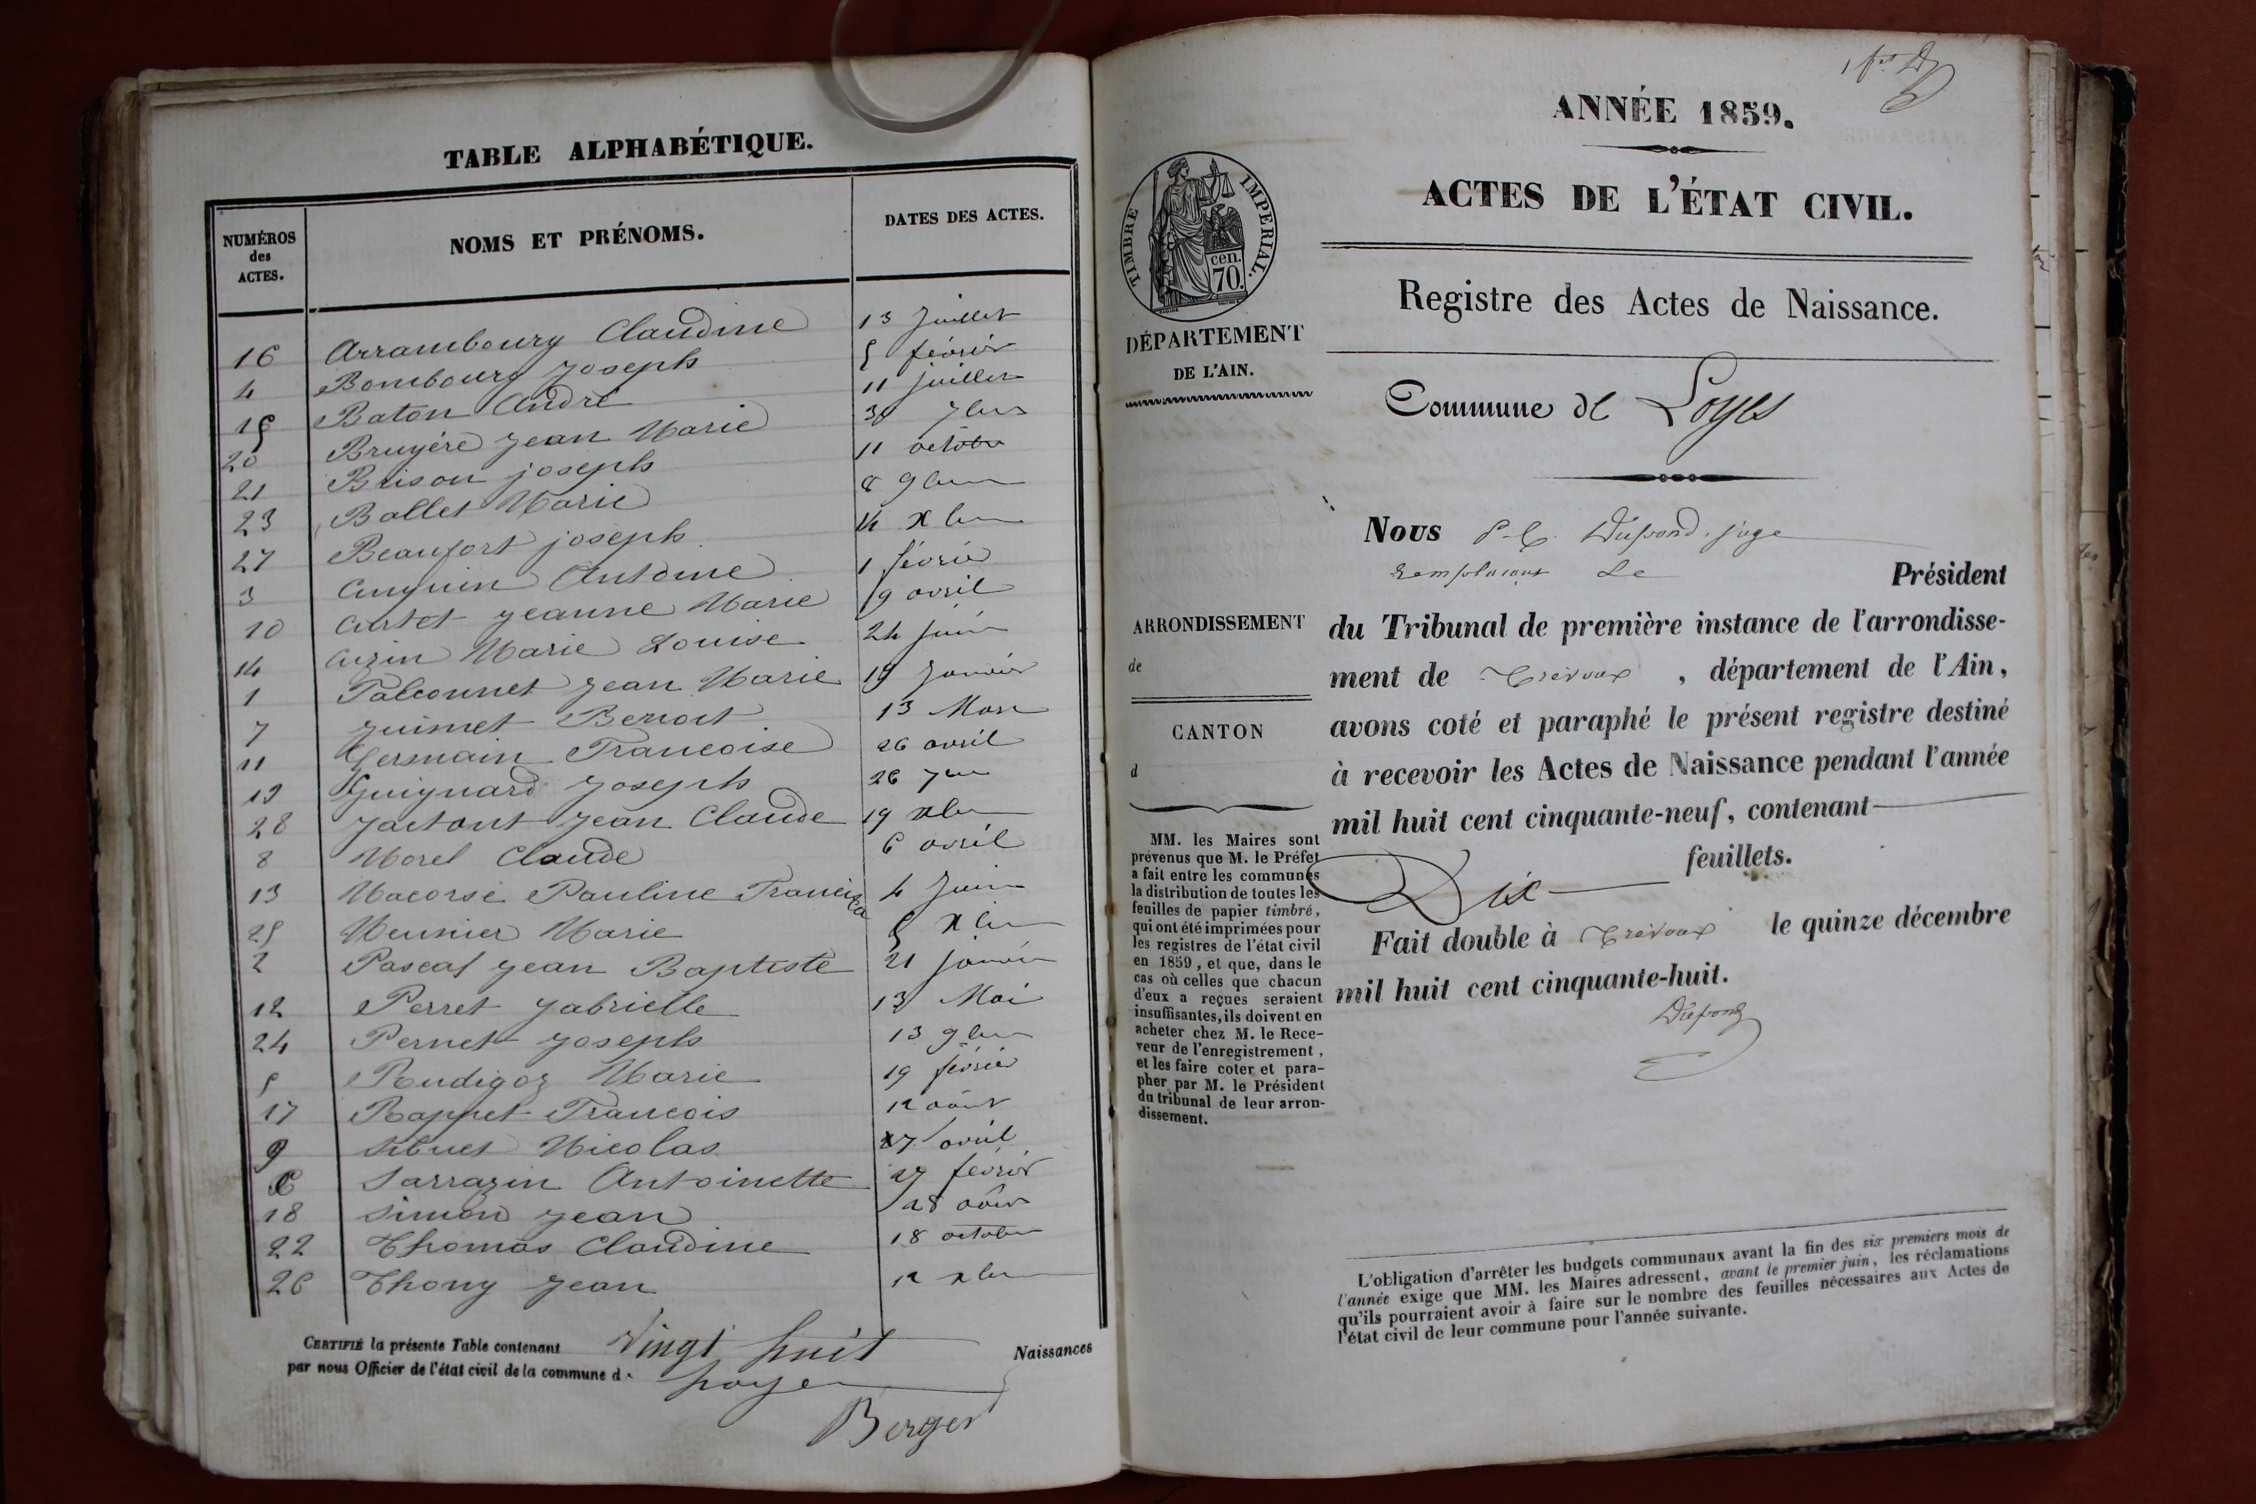 TABLE ALPHABÉTIQUE.
NUMÉROS des ACTES. NOMS ET PRÉNOMS. DATES DES ACTES.
16 Arrambourg Claudine 13 Juillet
4 Bombourg Joseph 5 février
15 Baton André 11 juillet
20 Bruyère Jean Marie 30 7bre
21 Brison joseph 11 octobre
23 Ballet Marie 8 9bre
27 Beaufort joseph 14 Xbre
3 Antoine 1 février
10 Curtet Jeanne Marie 9 avril
14 Cuzin Marie Louise 24 juin
1 Falconnet Jean Marie 19 Janvier
7 Guimet Benoit 13 Mars
11 Germain Francoise 26 avril
19 Guignard Joseph 26 7bre
28 Jean Claude 19 xbre
8 Morel Claude 6 avril
13 Pauline 4 Juin
25 Meunier Marie 5 Xbre
2 Pascal Jean Baptiste 21 janvier
12 Perret Gabrielle 13 Mai
24 Pernet Joseph 13 9bre
5 Rudigoz Marie 19 février
17 Rappet Francois 12 août
9 Sibuet Nicolas 27 avril
6 Sarrazin Antoinette 27 février
18 Simon Jean 28 août
22 Thomas Claudine 18 octobre
26 Thony Jean 12 xbre
CERTIFIÉ la présente Table contenant Vingt huit Naissances
par nous Officier de l'état civil de la commune d. Loyes
Berger
ANNÉE 1859.
ACTES DE L'ÉTAT CIVIL.
TIMBRE IMPERIAL.
cen.
70.
Registre des Actes de Naissance.
DÉPARTEMENT
DE L'AIN.
Commune de Loyes
Nous Dupond juge
remplaçant Le Président
ARRONDISSEMENT
de
du Tribunal de première instance de l'arrondisse-
ment de Trévoux, département de l'Ain,
CANTON
d
avons coté et paraphé le présent registre destiné
à recevoir les Actes de Naissance pendant l'année
mil huit cent cinquante-neuf, contenant
Dix feuillets.
Fait double à Trévoux le quinze décembre
mil huit cent cinquante-huit.
Dupond
MM. les Maires sont
prévenus que M. le Préfet
a fait entre les communes
la distribution de toutes les
feuilles de papier timbré,
qui ont été imprimées pour
les registres de l'état civil
en 1859, et que, dans le
cas où celles que chacun
d'eux a reçues seraient
insuffisantes, ils doivent en
acheter chez M. le Rece-
veur de l'enregistrement,
et les faire coter et para-
pher par M. le Président
du tribunal de leur arron-
dissement.
L'obligation d'arrêter les budgets communaux avant la fin des six premiers mois de
l'année exige que MM. les Maires adressent, avant le premier juin, les réclamations
qu'ils pourraient avoir à faire sur le nombre des feuilles nécessaires aux Actes de
l'état civil de leur commune pour l'année suivante.